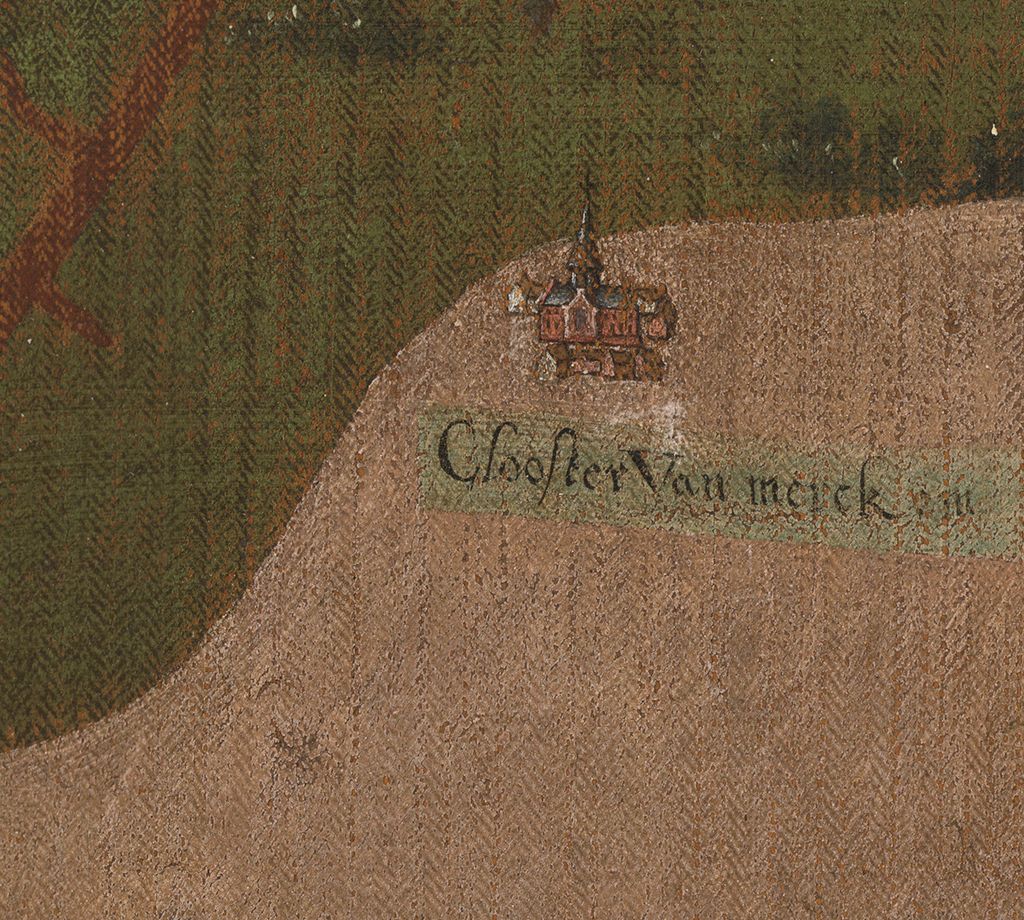 Clooster Van merckem